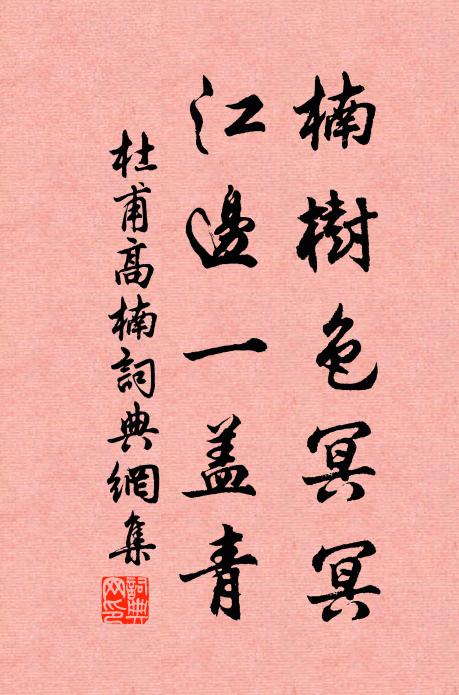 楠樹色冥冥
江邊一盖青
杜甫高楠詞典網集
詞典網印